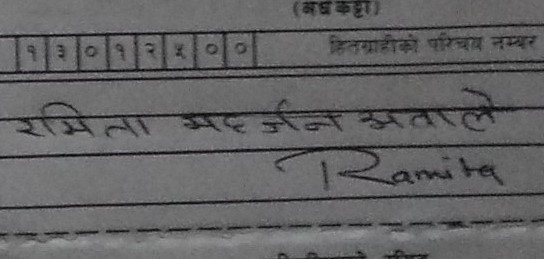 (बधकट्टा)
१३०१२५०० हितग्राहीको परिचय नम्बर
रमिता महर्जन अवाले
Ramita